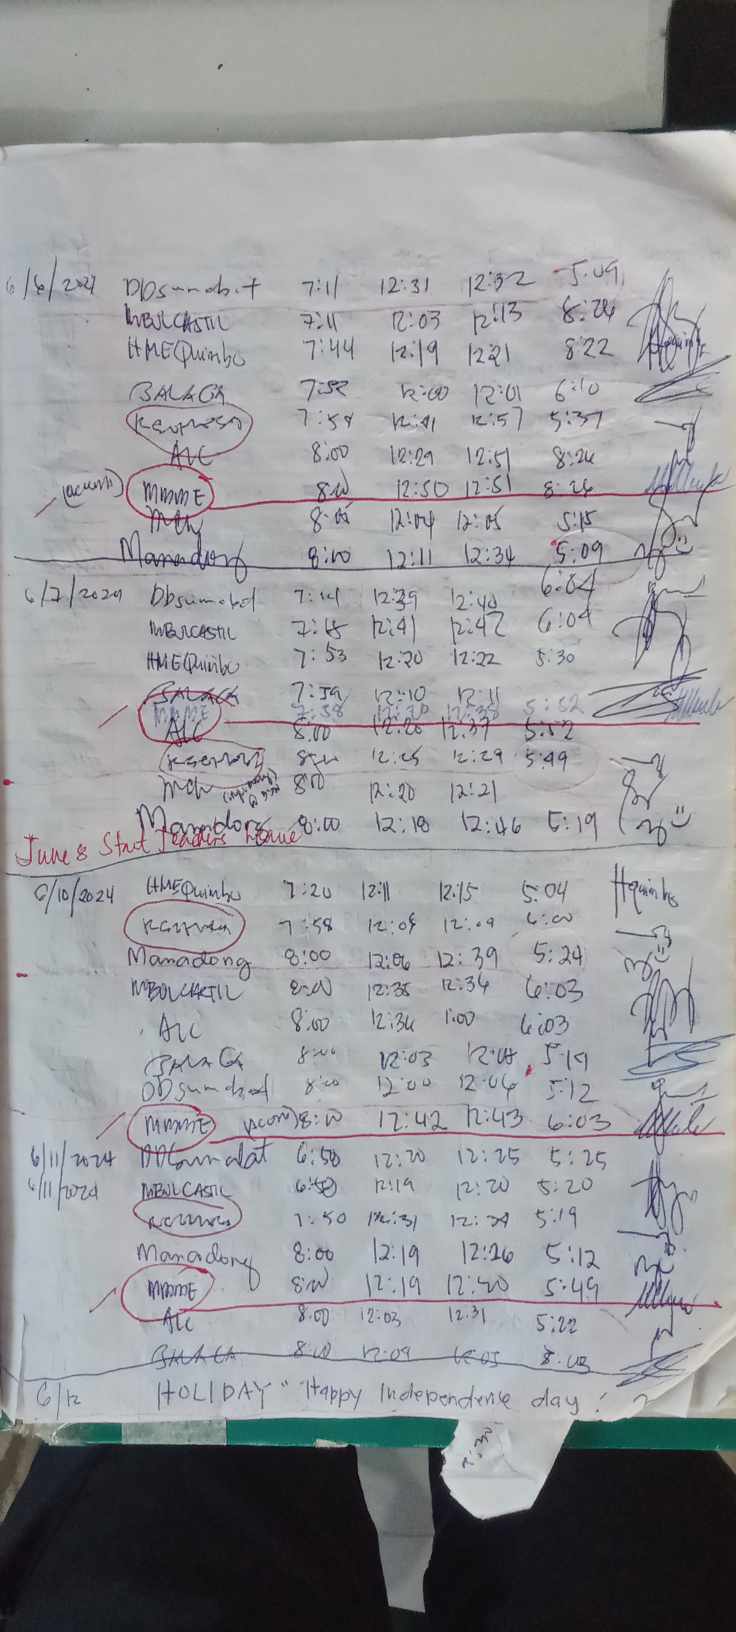 6/6/2024 DDsumabat 7:11 12:31 12:32 5:09
MBULCASTIL 7:11 12:03 12:13 8:24
HMEQuimbo 7:44 12:19 12:21 8:22
BALAGA 7:52 12:00 12:01 6:10
7:58 12:41 12:57 5:37
ALC 8:00 12:29 12:51 8:26
MMME 8:00 12:50 12:51 8:26
8:05 12:04 12:05 5:15
Manadong 8:00 12:11 12:34 5:09
6/7/2024 DDsumabat 7:14 12:39 12:40 6:04
MBULCASTIL 7:15 12:41 12:42 6:04
HMEQuimbo 7:53 12:20 12:22 5:30
BALAGA 7:59 12:10 12:11
MMME 7:58 5:52
ALC 8:00 12:26 12:37 5:52
12:25 12:29 5:49
8:00 12:20 12:21
Manadong 8:00 12:18 12:46 5:19
June 8 Start Teachers leave
6/10/2024 HMEQuimbo 7:20 12:11 12:15 5:04 Hquimbo
7:58 12:08 12:09 6:00
Manadong 8:00 12:06 12:39 5:24
MBULCASTIL 8:00 12:35 12:36 6:03
ALC 8:00 12:36 1:00 6:03
BALAGA 8:00 12:03 12:04 5:19
DDsumabat 8:00 12:00 12:06 5:12
MMME 8:00 12:42 12:43 6:03
6/11/2024 DDSumabat 6:50 12:20 12:25 5:25
6/11/2024 MBULCASTIL 6:50 12:19 12:20 5:20
7:50 12:31 12:39 5:19
Manadong 8:00 12:19 12:26 5:12
MMME 8:00 12:19 12:20 5:49
ALC 8:00 12:03 12:31 5:22
BALAGA 8:00 12:09
6/12 HOLIDAY "Happy Independence day!